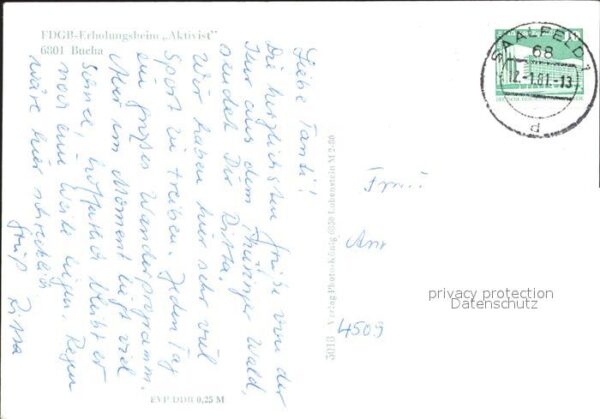 FDGB-Erholungsheim „Aktivist"
6801 Bucha
Liebe Tanti!
Die herzlichsten Grüße von der
Tour aus dem Thüringer Wald,
sendet Dir Ritta.
Wir haben hier sehr viel
Sport zu treiben. Jeden Tag
ein großes Wanderprogramm.
Aber im Moment liegt viel
Schnee, hoffentlich bleibt er
noch eine Weile liegen. Regen
wäre hier schrecklich
Gruß Ritta
EVP DDR 0,25 M
5016 Verlag Photo-König 6850 Lobenstein M 2-80
Frau
An
4509
SAALFELD 1
68
12.-1.81.-13
d
10
privacy protection
Datenschutz